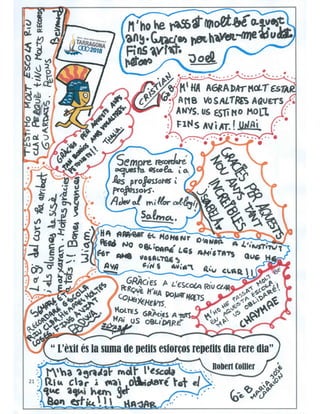 T'ESTIMO MOLT ESCOLA RIU
CLAR PERQUÈ TINC MOLTS RECORDS
GUARDATS. PETONS
Bernardo
TARRAGONA
2018
M'ho he passat molt bé aquest
any. Gràcies per haver-me ajudat.
Fins aviat
petons
Joel
CRISTIAN 6è B
M'HA AGRADAT MOLT ESTAR
AMB VOSALTRES AQUESTS
ANYS. US ESTIMO MOLT
FINS AVIAT! UNAI
GRÀCIES PER AQUESTS ANYS
Sempre recordaré
aquesta escola i a
les professores i
professors.
Adeu al millor col·legi!
Salma.
GRÀCIES PER AQUEST
NOU ANYS TAN
INCREÏBLES
ISABELA
La fi del curs ha arribat
i els alumnes de sisè
marxaran. Moltes gràcies
a tots!! Bones vacances!
Wiam
HA ARRIBAT EL MOMENT D'ANAR A L'INSTITUT
PERÒ NO OBLIDARÉ LES AMISTATS QUE HE
FET AMB VOSALTRES
AYA FINS AVIAT RIU CLAR!!!
GRÀCIES A L'ESCOLA RIU CLAR
PERQUÈ M'HA DONAT MOLTS
CONEIXEMENTS.
MOLTES GRÀCIES A TOTS
MAI US OBLIDARÉ
M'HO HE PASSAT MOLT BÉ
EN AQUESTA ESCOLA
MAI US OBLIDARÉ!
CHAYMAE
“ L'èxit és la suma de petits esforços repetits dia rere dia”
Robert Collier
21
M'ha agradat molt l'escola
Riu clar i mai oblidaré tot el
que aquí hem fet
Bon estiu!!! HAJAR
6è B MARIA JOSÉ
CARRIÓN